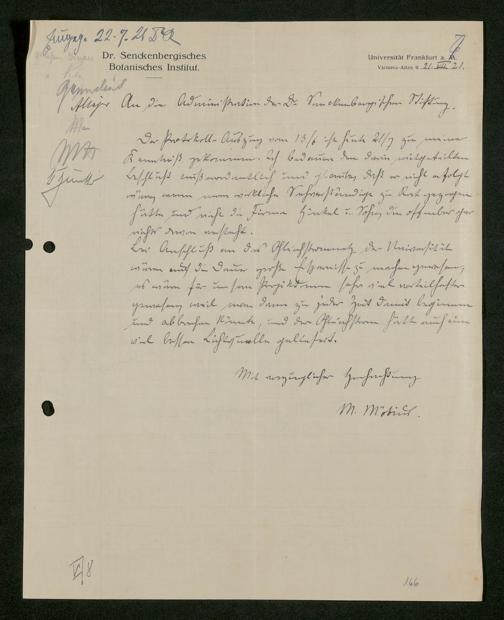 Eingeg. 22.7.21
Dr. Senckenbergisches
Botanisches Institut.
Universität Frankfurt a. M.
Victoria-Allee 9 21. VII. 21.
An die Administration der Dr. Senckenbergischen Stiftung.
Der Protokoll-Auszug vom 13/6 ist heute 21/7 zu meiner
Kenntniß gekommen. Ich bedaure den darin mitgeteilten
Beschluß außerordentlich und glaube, daß er nicht erfolgt
wäre, wenn man wirkliche Sachverständige zu Rat gezogen
hätte und nicht die Firma Hinkel u. Sohn, die offenbar gar
nichts davon versteht.
Bei Anschluß an das Gleichstromnetz der Universität
wären auf die Dauer große Ersparnisse zu machen gewesen,
es wäre für unsern Projektionen sehr viel vorteilhafter
gewesen, weil man dann zu jeder Zeit damit beginnen
und abbrechen könnte, und der Gleichstrom hätte auch eine
viel bessere Lichtquelle geliefert.
Mit vorzüglicher Hochachtung
M. Möbius.
V/8
166